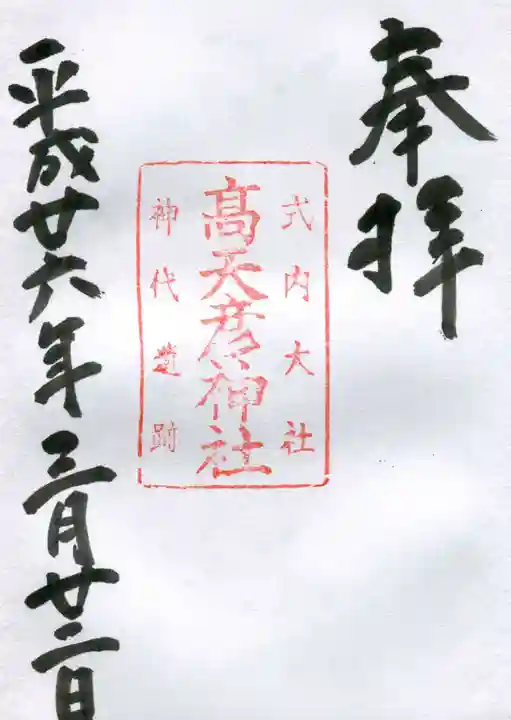 奉拝
式内大社
髙天彦神社
神代遺跡
平成廿六年三月廿二日